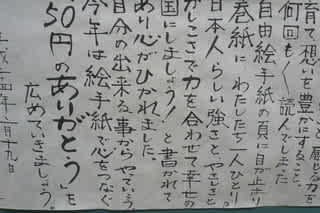 育て想いを豊かにすること。
何回も〱読んかしまった
自由絵手紙の頁に目が止まり
巻紙にわたしたち一人ひとり。
日本人らしい強さとやさしさと
かしこさで力を合わせて幸せの
国にしましょう!と書かれて
あり心がひかれました。
自分の出来る事からやっていこう
今年は絵手紙で心をつなぐ
50円のありがとうを
広めていきましょう。
平成二十四年 月十九日